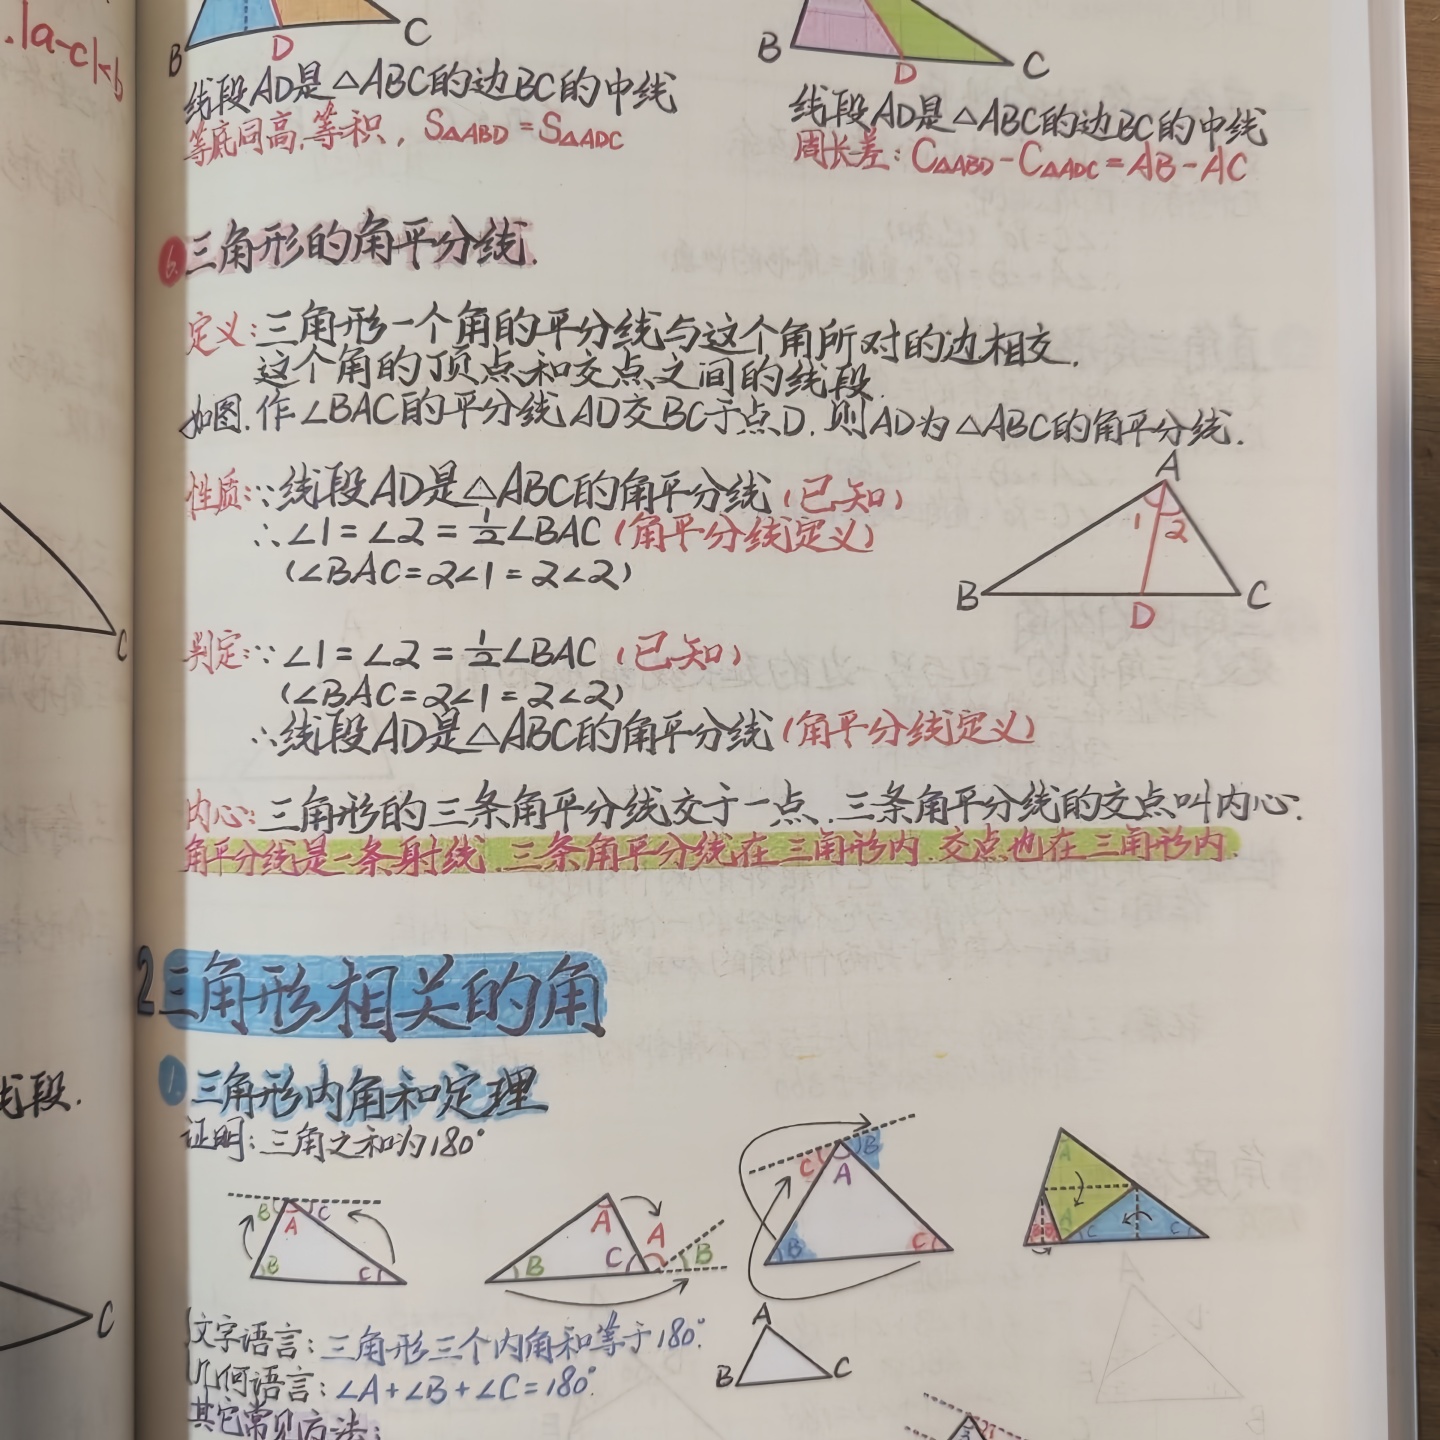 .|a-c|<b
B D C
B D C
线段AD是△ABC的边BC的中线
等底同高,等积, S△ABD=S△ADC
线段AD是△ABC的边BC的中线
周长差: C△ABD-C△ADC=AB-AC
6.三角形的角平分线.
定义:三角形一个角的平分线与这个角所对的边相交.
这个角的顶点和交点之间的线段.
如图.作∠BAC的平分线AD交BC于点D.则AD为△ABC的角平分线.
性质:∵线段AD是△ABC的角平分线(已知)
∴∠1=∠2=½∠BAC(角平分线定义)
(∠BAC=2∠1=2∠2)
A
1 2
B D C
C
判定:∵∠1=∠2=½∠BAC(已知)
(∠BAC=2∠1=2∠2)
∴线段AD是△ABC的角平分线(角平分线定义)
内心:三角形的三条角平分线交于一点.三条角平分线的交点叫内心.
角平分线是一条射线.三条角平分线在三角形内.交点也在三角形内.
2三角形相关的角
线段.
1.三角形内角和定理
证明:三角之和为180°
B A C
B C
A A
B C B
C A B
B C
A
B B A C C
C
文字语言:三角形三个内角和等于180°.
几何语言:∠A+∠B+∠C=180°.
A
B C
其它常见方法: